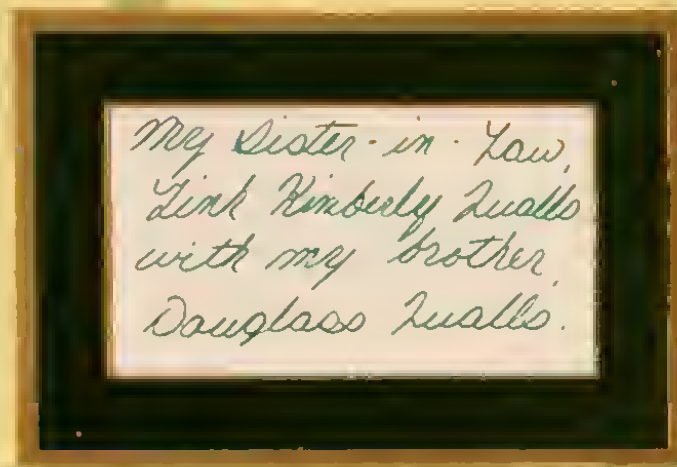 My Sister-in-Law,
Link Kimberly Qualls
with my brother,
Douglass Qualls.